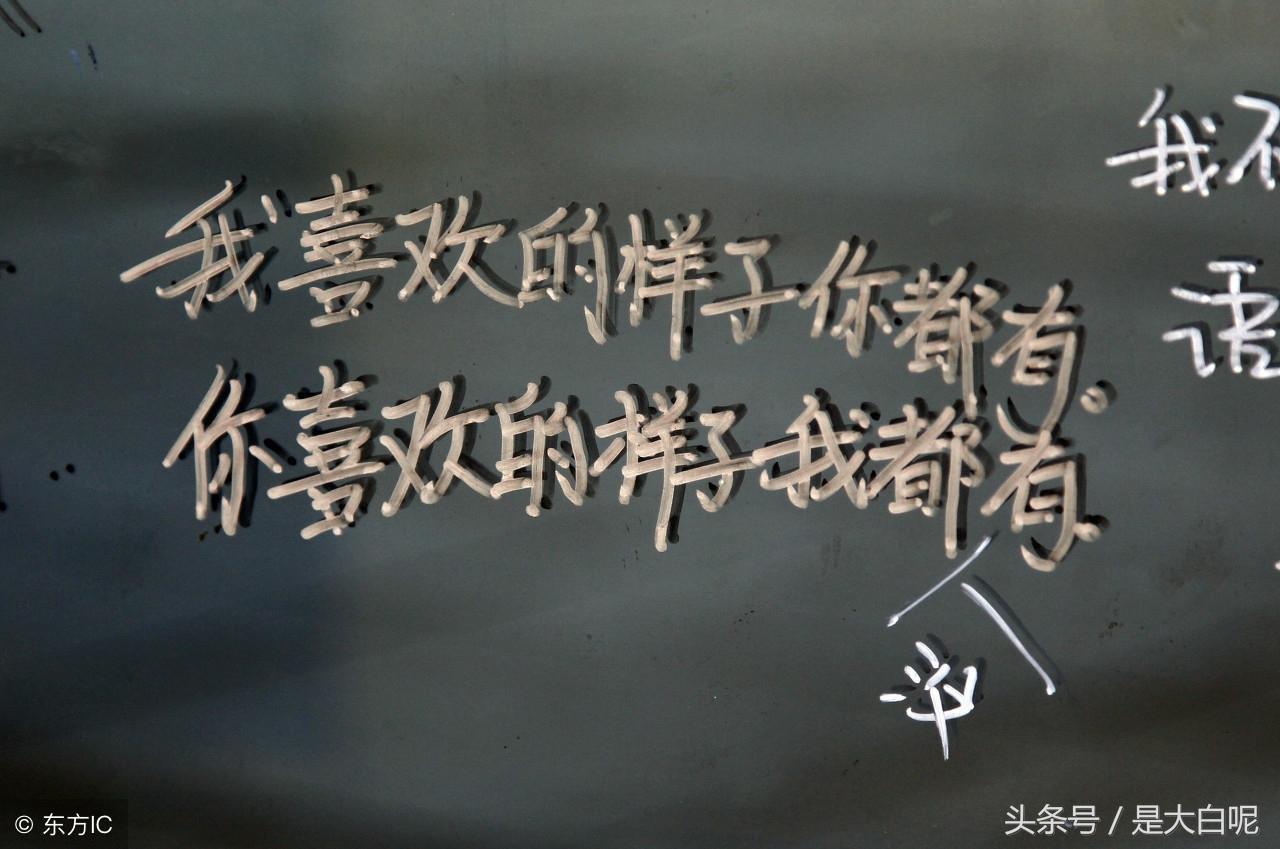 我喜欢的样子你都有。
你喜欢的样子我都有。
我
© 东方IC
头条号 / 是大白呢